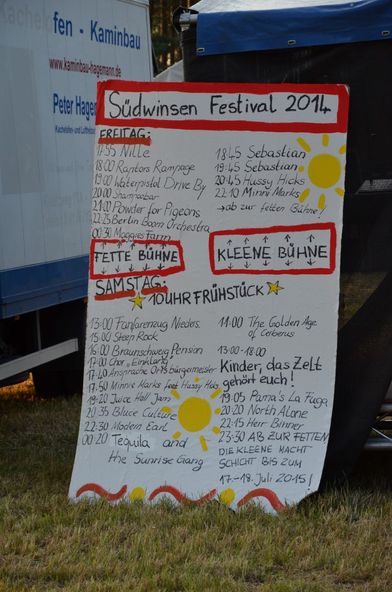 Kachelofen - Kaminbau
www.kaminbau-hagemann.de
Peter Hagem
Kachelofen- und Luftheizu
Südwinsen Festival 2014
FREITAG:
17:35 Nille
18:00 Raptors Rampage
19:00 Waterpistol Drive By
20:00 Shamparbar
21:00 Powder for Pigeons
22:25 Berlin Boom Orchestra
00:30 Maggies Farm
18:45 Sebastian
19:45 Sebastian
20:45 Hussy Hicks
22:10 Minni Marks
→ ab zur fetten Bühne!
FETTE BÜHNE
KLEENE BÜHNE
SAMSTAG:
10 UHR FRÜHSTÜCK
13:00 Fanfarenzug Nieders.
15:00 Steep Rock
16:00 Braunschweig Pension
17:00 Chor „Einklang"
17:40 Ansprache Ortsbürgermeister
17:50 Minnie Marks feat Hussy Hicks
19:20 Juice Hall Jam
20:35 Bluce Culture
22:30 Modern Earl
00:20 Tequila and
the Sunrise Gang
11:00 The Golden Age
of Cerberus
13:00-18:00
Kinder, das Zelt
gehört euch!
19:05 Parra's La Fuga
20:20 North Alone
22:15 Herr Binner
23:30 AB ZUR FETTEN
DIE KLEENE MACHT
SCHICHT BIS ZUM
17.-18. Juli 2015!